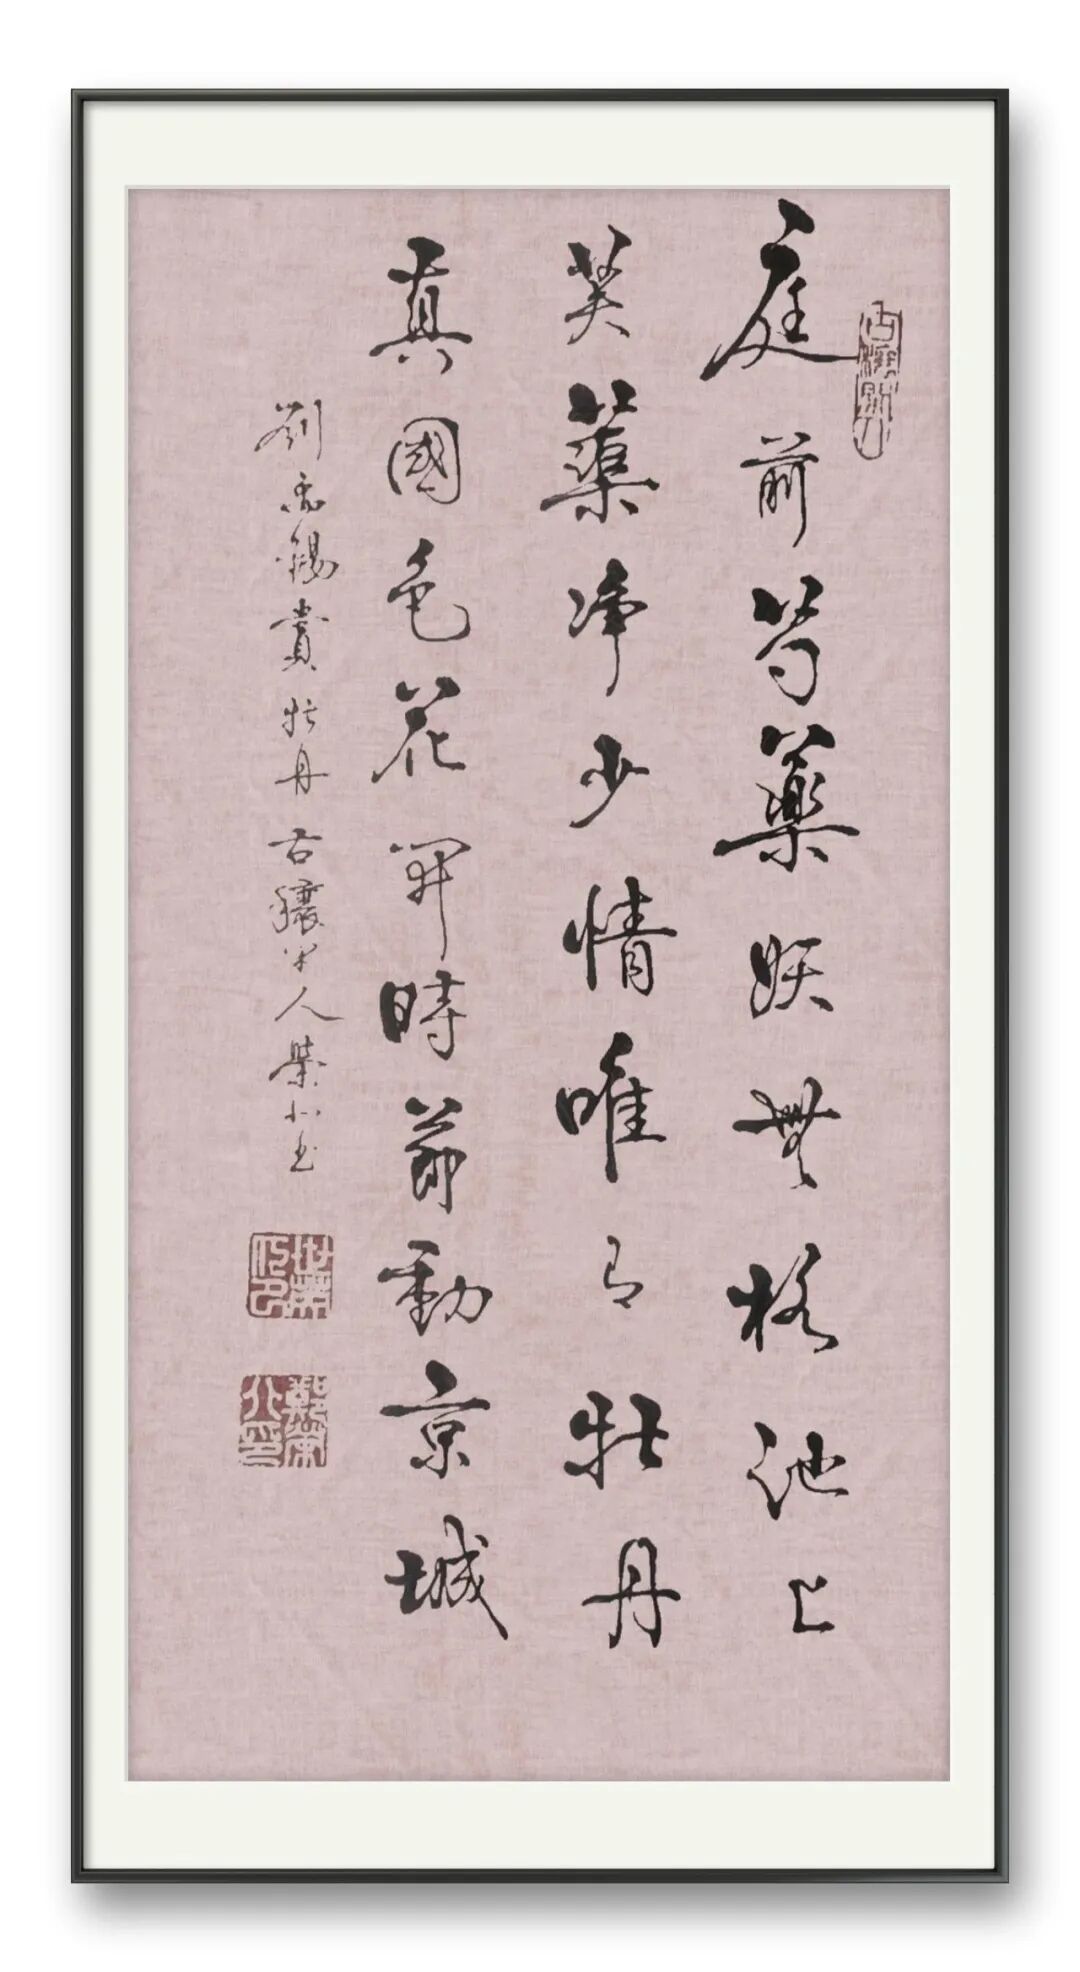 庭前芍藥妖無格池上
芙蕖净少情唯有牡丹
真國色花開時節動京城
劉禹錫賞牡丹 古穰